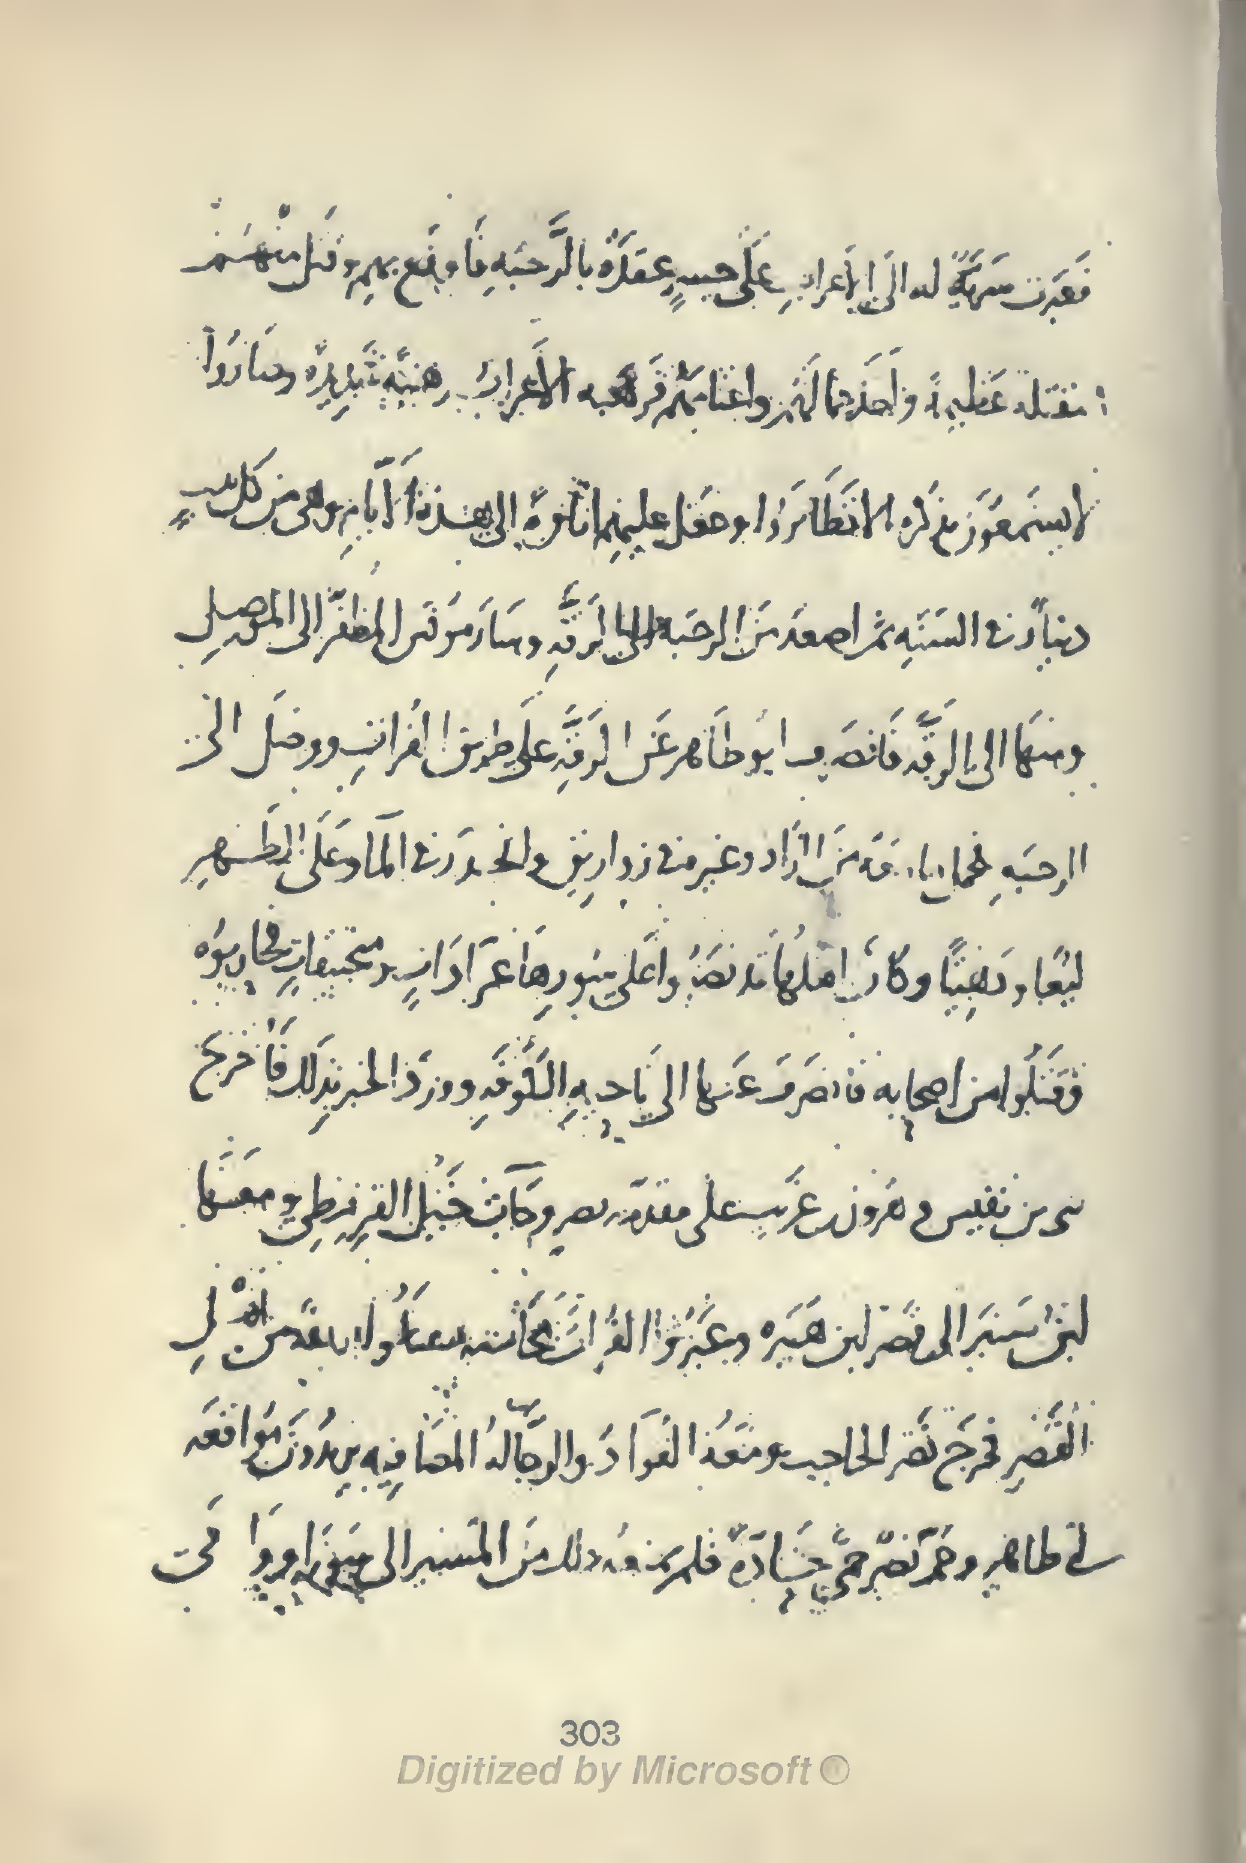 فعبرت سرية له الى الاعراب على جسر عقده بالرحبه فاوقع بهم وقتل منهم
مقتلة عظيمة واخذ جمالهم واغنامهم فرهبه الاعراب رهبة شديدة وصاروا
لا يسمعون بذكره الا تطايروا وجعل عليهم اتاوة الى هذه الايام وهي من كل بيت
دينار في السنة ثم اصعد من الرحبة الى الرقة وسار مونس المظفر الى الموصل
ومنها الى الرقه فانصرف ابو طاهر عن الرقة على طريق الفرات ووصل الى
الرحبه فحمل ما معه من الزاد وغيره في زواريق وانحدر في الماء وعلى الظهر
ليومه الى هيت وكان اهلها قد نصبوا على سورها عرادات ومنجنيقات فحاربوه
فقتلوا من اصحابه فانصرف عنها الى ناحيه الكوفة وورد الخبر بذلك فاخرج
بنى بن نفيس وهرون بن غريب على مقدمة نصر وجاءت خيل القرمطي ومعها
ابن سنبر الى قصر ابن هبيره وعبروا الفرات بمخاضة فقتلوا جماعة من اهل
القصر فخرج نصر الحاجب ومعه القواد والرجالة المصافية يريدون مواقعة
ابي طاهر وحم نصر حمى حادة فلم يمنعه ذلك من المسير الى سورا ووافى
303
Digitized by Microsoft ®